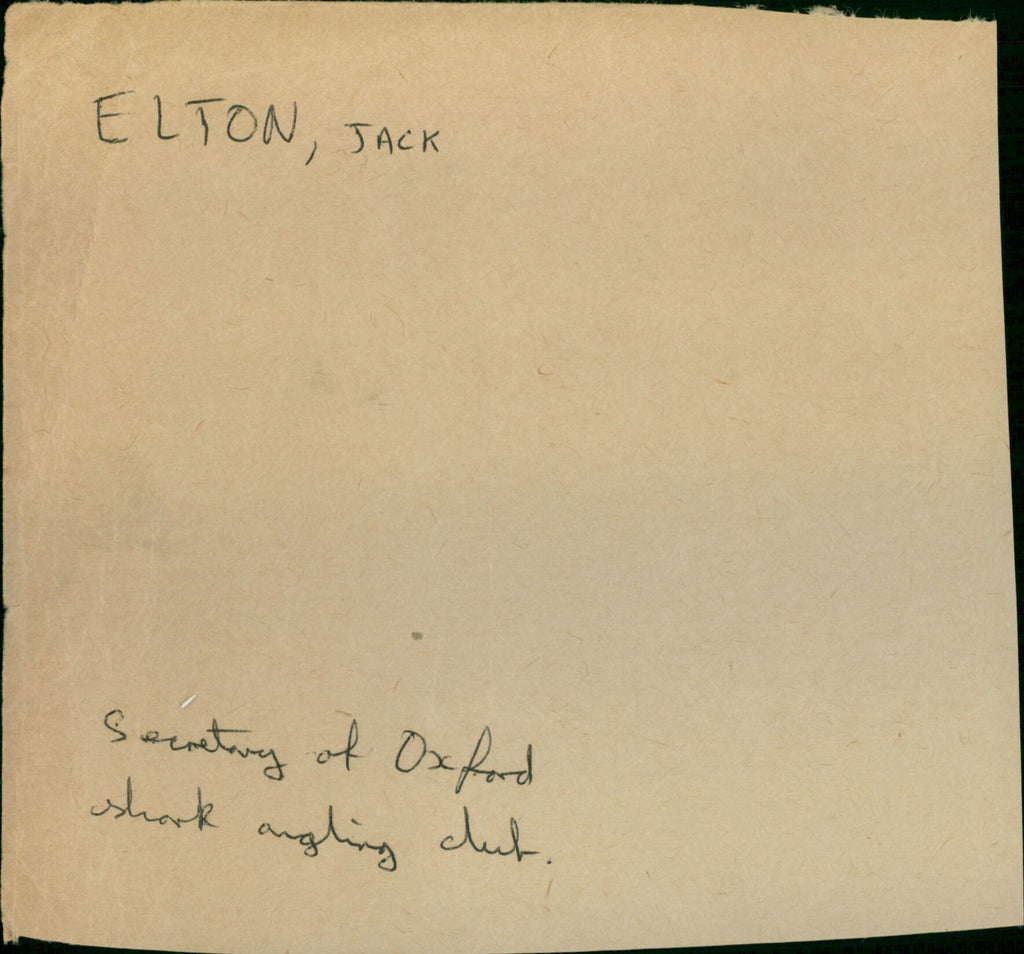 ELTON, JACK
Secretary of Oxford
shark angling club.